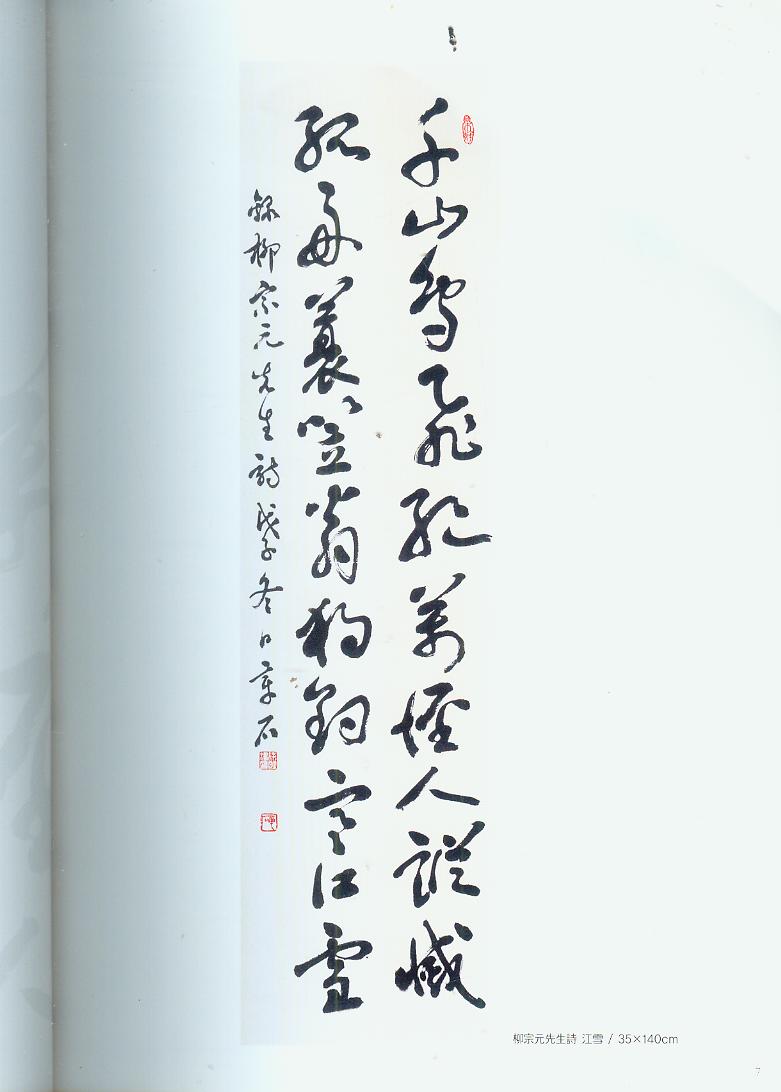 千山鳥飛絕萬徑人蹤滅
孤舟蓑笠翁獨釣寒江雪
錄柳宗元先生詩戊子冬日 石
柳宗元先生詩 江雪 / 35×140cm
7